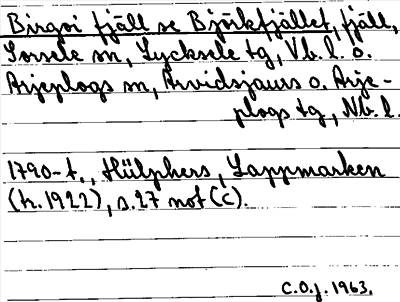 Birgoi fjäll se Björkfjället, fjäll,
Sorsele sn, Lycksele tg, Vb. l. o.
Arjeplogs sn, Arvidsjaurs o. Arje-
plogs tg, Nb. l.
1790-t., Hülphers, Lappmarken
(tr. 1922), s. 27 not (c).
C.O.J. 1963.